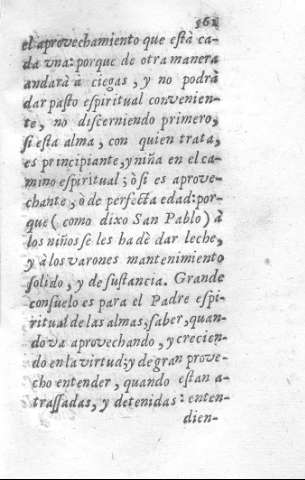 361
el aprovechamiento que està ca-
da vna: porque de otra manera
andarà à ciegas, y no podrà
dar pasto espiritual convenien-
te, no discerniendo primero,
si esta alma, con quien trata,
es principiante, y niña en el ca-
mino espiritual; ò si es aprove-
chante, ò de perfecta edad: por-
que (como dixo San Pablo) à
los niños se les ha dè dar leche,
y à los varones mantenimiento
solido, y de sustancia. Grande
consuelo es para el Padre espi-
ritual de las almas, saber, quan-
do va aprovechando, y crecien-
do en la virtud; y de gran prove-
cho entender, quando estan a-
trassadas, y detenidas: enten-
dien-